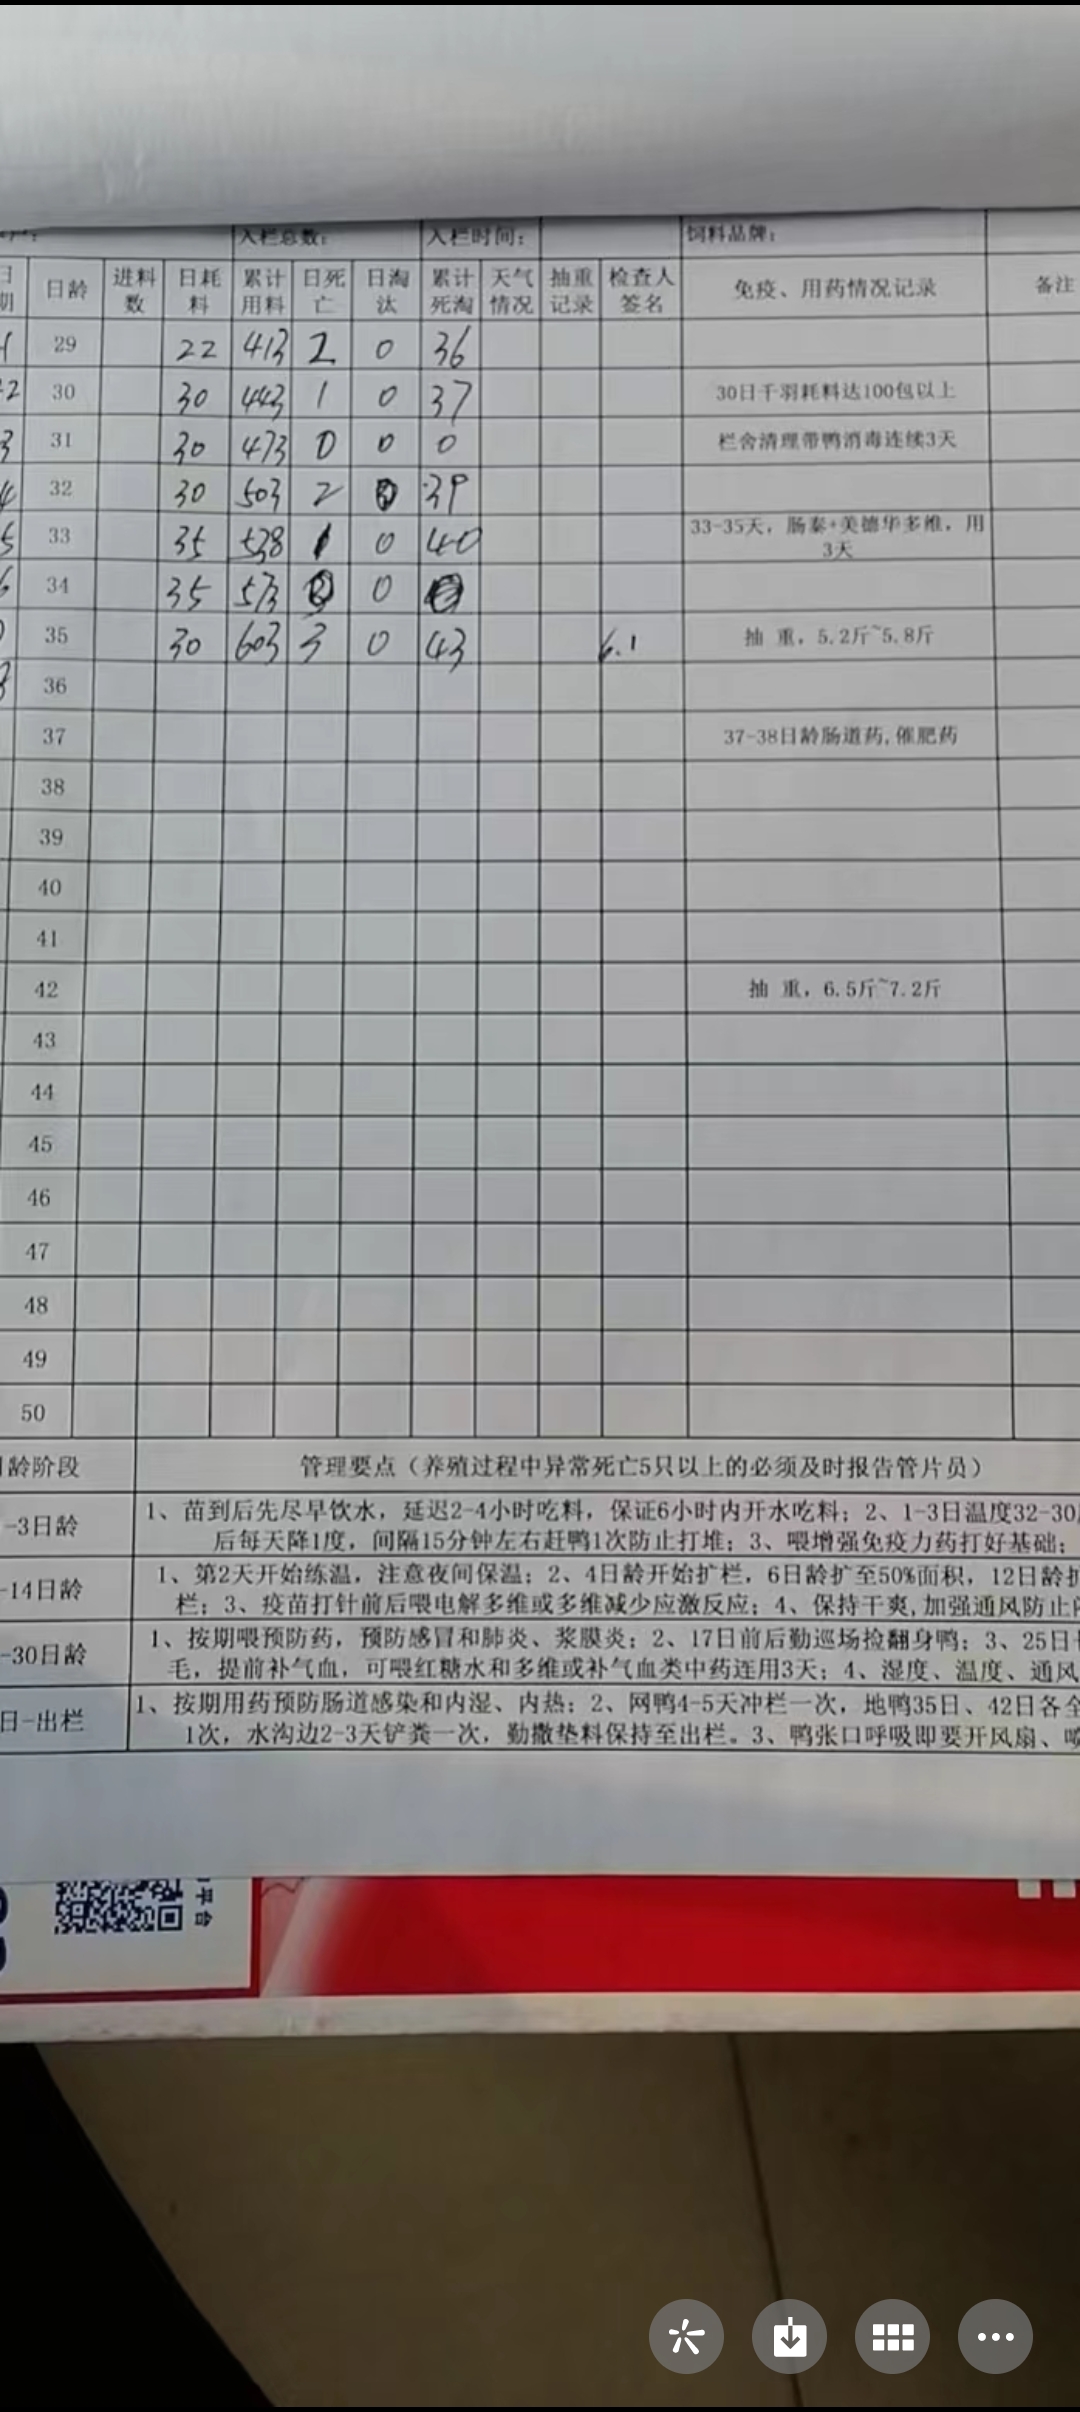 入栏总数： 入栏时间： 饲料品牌：
日期 日龄 进料数 日耗料 累计用料 日死亡 日淘汰 累计死淘 天气情况 抽重记录 检查人签名 免疫、用药情况记录 备注
29 22 413 2 0 36
30 30 443 1 0 37 30日千羽耗料达100包以上
31 30 473 0 0 0 栏舍清理带鸭消毒连续3天
32 30 503 2 0 39
33 35 538 1 0 40 33-35天，肠泰+美德华多维，用3天
34 35 573 0
35 30 603 3 0 43 6.1 抽 重，5.2斤~5.8斤
36
37 37-38日龄肠道药,催肥药
38
39
40
41
42 抽 重，6.5斤~7.2斤
43
44
45
46
47
48
49
50
龄阶段 管理要点（养殖过程中异常死亡5只以上的必须及时报告管片员）
-3日龄 1、苗到后先尽早饮水，延迟2-4小时吃料，保证6小时内开水吃料；2、1-3日温度32-30
后每天降1度，间隔15分钟左右赶鸭1次防止打堆；3、喂增强免疫力药打好基础；
-14日龄 1、第2天开始练温，注意夜间保温；2、4日龄开始扩栏，6日龄扩至50%面积，12日龄扩
栏；3、疫苗打针前后喂电解多维或多维减少应激反应；4、保持干爽,加强通风防止
-30日龄 1、按期喂预防药，预防感冒和肺炎、浆膜炎；2、17日前后勤巡场捡翻身鸭；3、25日
毛，提前补气血，可喂红糖水和多维或补气血类中药连用3天；4、湿度、温度、通风
日-出栏 1、按期用药预防肠道感染和内湿、内热；2、网鸭4-5天冲栏一次，地鸭35日、42日各全
1次，水沟边2-3天铲粪一次，勤撒垫料保持至出栏。3、鸭张口呼吸即要开风扇、喷
平台